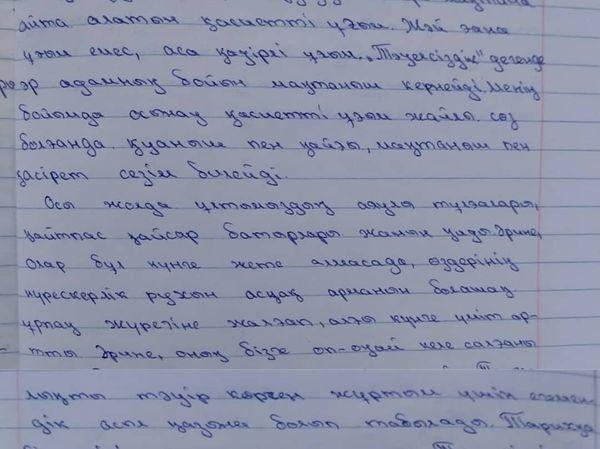 айта алатын қасиетті ұғым. Жәй ғана
ұғым емес, аса қазіргі ұғым. „Тәуелсіздік" дегенде
әр адамның бойын мақтаныш кернейді. Менің
бойымда осынау қасиетті ұғым жайлы сөз
болғанда қуаныш пен қайғы, мақтаныш пен
қасірет сезім билейді.
Осы жолда ұлтымыздың аяулы тұлғалары,
қайтпас қайсар батырлары жанын қиды. Әрине,
олар бұл күнге жете алмасада, өздерінің
күрескерлік рухын асқақ арманын болашақ
ұрпақ жүрегіне жалғап, алғы күнге үміт ар-
тты. Әрине, оның бізге оп-оңай келе салғаны
тәуір көрген жұртым үшін егемен-
дік асыл қазына болып табылады. Тарихқа